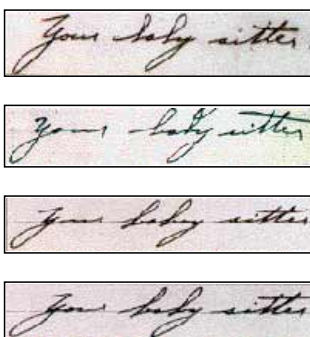 Your baby sitter
Your baby sitter
Your baby sitter
Your baby sitter